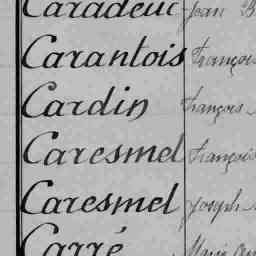 Caradeuc Jean B
Carantois François
Cardin François
Caresmel François
Caresmel Joseph
Carré Marie